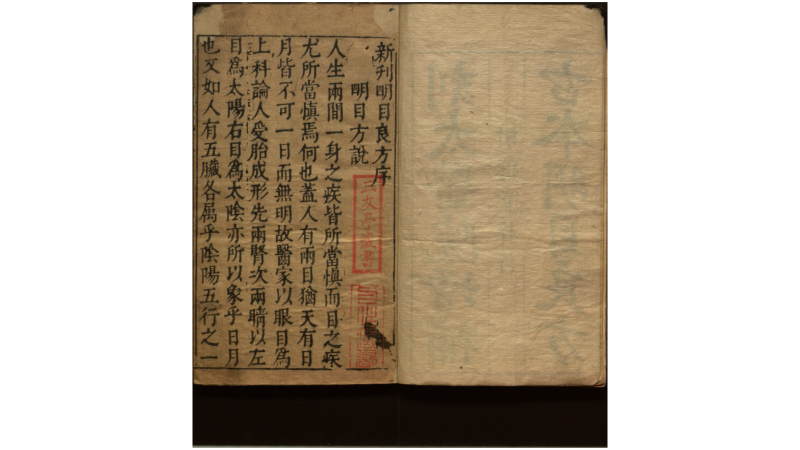 新刊明目良方序
明目方說
人生兩間一身之疾皆所當慎而目之疾
尤所當慎焉何也蓋人有兩目猶天有日
月皆不可一日而無明故醫家以眼目為
上科論人受胎成形先兩腎次兩睛以左
目為太陽右目為太陰亦所以象乎日月
也又如人有五臟各属乎陰陽五行之一